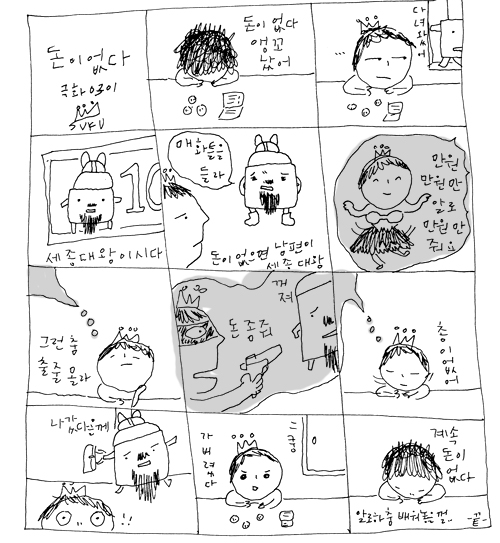 돈이 없다
극화 ozo이
SUKU
돈이 없다
앵꼬
났어
...
다
녀
와
써
어
10
세종대왕이시다
매
화틀을
들라
돈이 없으면 남편이
세종대왕
만원
만원만
알로
만원만
줘요
그런 춤
출줄 몰라
돈 좀 줘
꺼
져
총이
없
어
나갔다올께
!!
가
버
렸
다
그
계속
돈이
없다
알로하춤 배워놓을걸..
-끝-